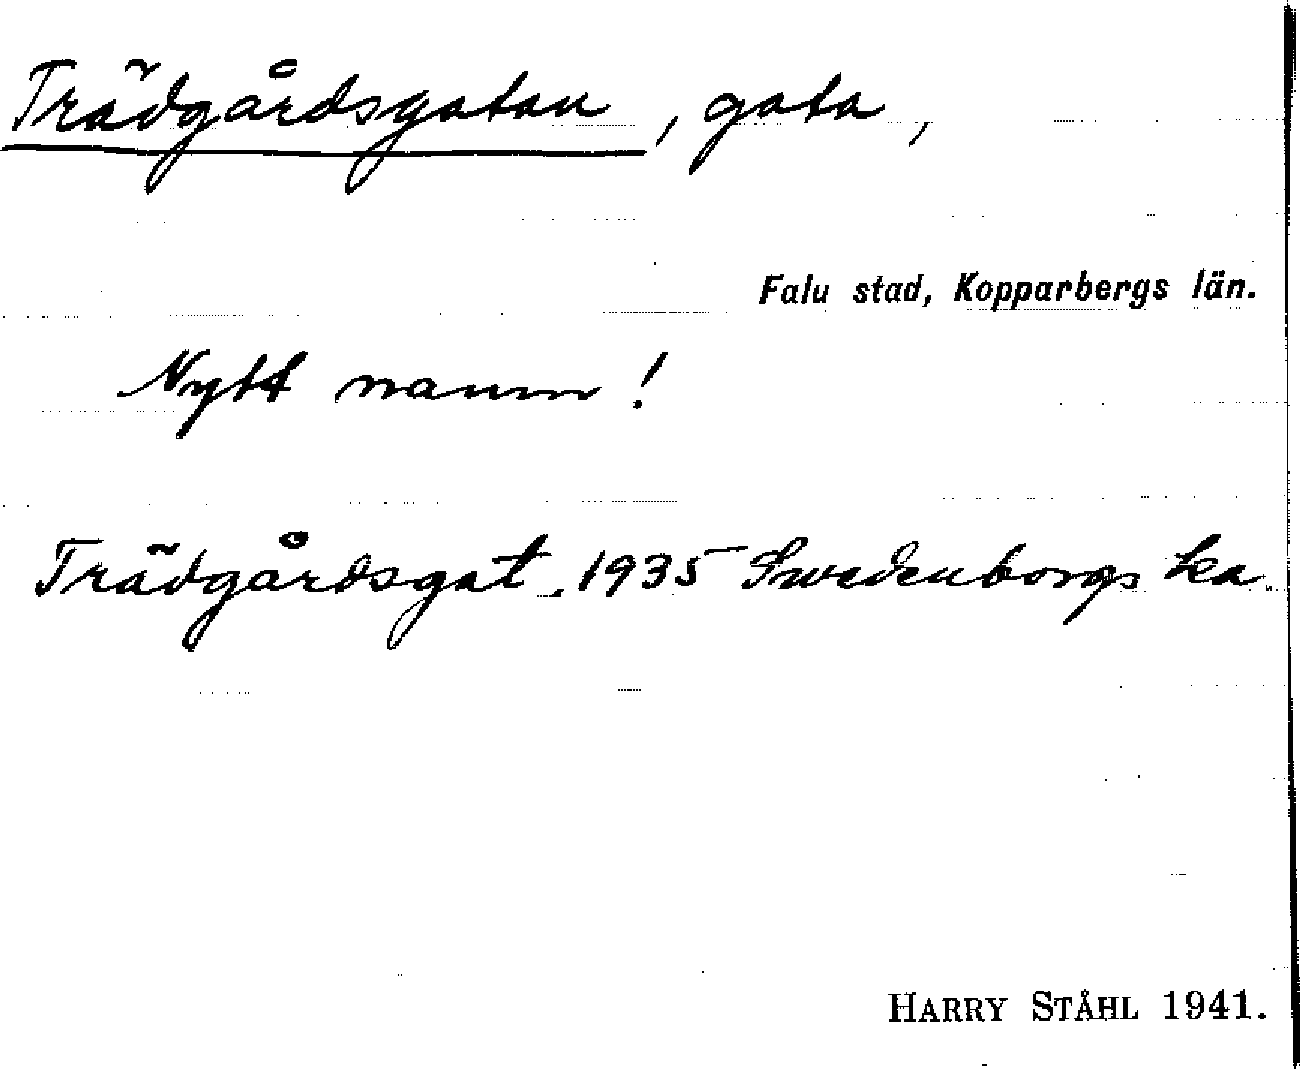 Trädgårdsgatan, gata,
Falu stad, Kopparbergs län.
Nytt namn!
Trädgårdsgat. 1935 Swedenborgs ka
HARRY STÅHL 1941.